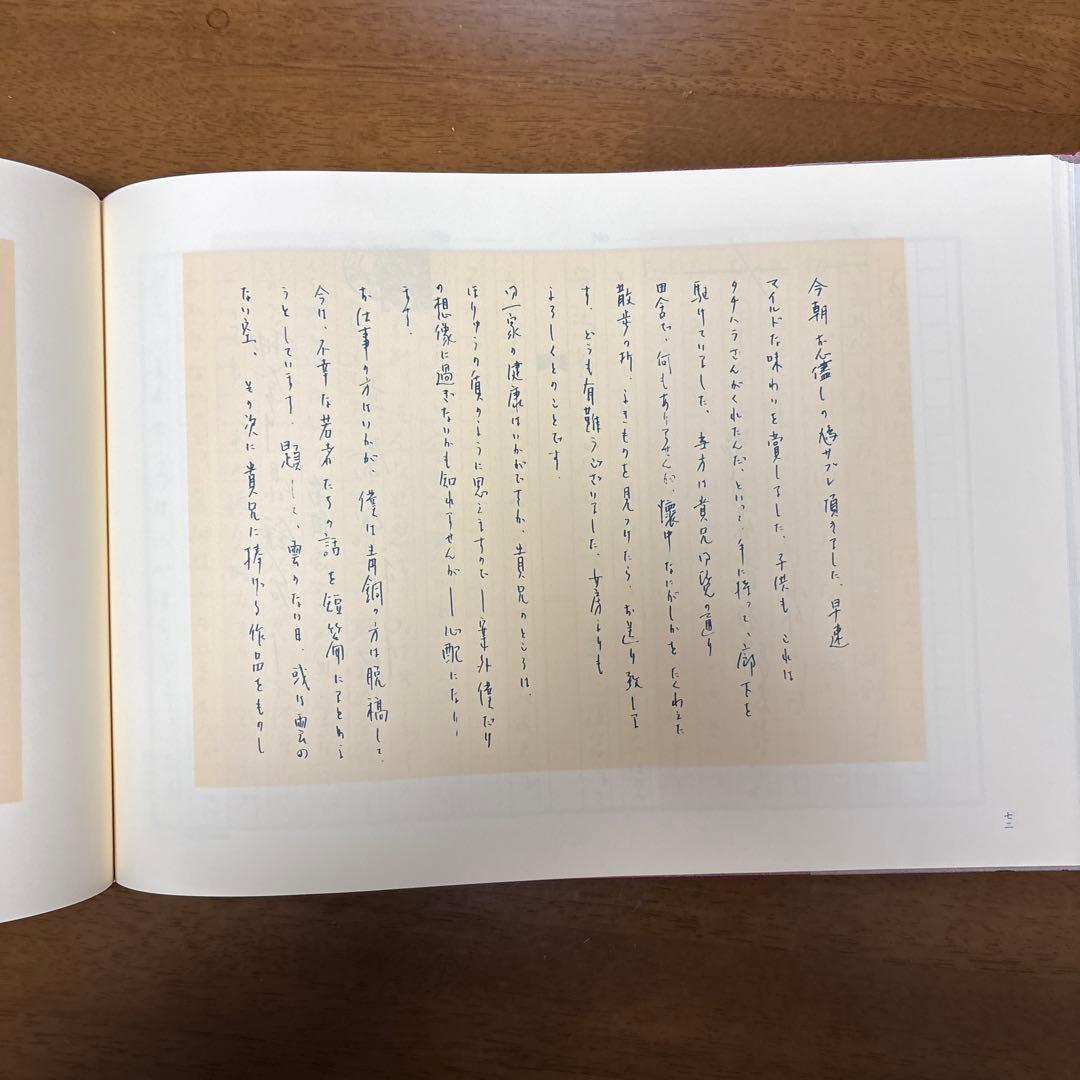 今朝お心儘しの鳩サブレ頂きました、早速
マイルドな味わりを賞しました、子供も これは
タチハラさんがくれたんだ、といって、手に持って、廊下を
駈けていました、 当方は貴兄御覧の通り
田舎で、何もありませんが、懐中なにがしかをたくわえた
散歩の折、よきものを見つけたら、お送り致しま
す、どうも有難うございました、女房よりも
よろしくとのことです.
御一家の健康はいかがですか、貴兄のところは、
ほりゅうの質のように思えますので―案外僕だけ
の想像に過ぎないかも知れませんが―心配になり
ます.
お仕事の方はいかが、 僕は青銅の方は脱稿して、
今は、不幸な若者たちの話を短篇にまとめよ
うとしています. 題して、雲のない日、或は雲の
ない空、 その次に貴兄に捧げる作品をものし
七二